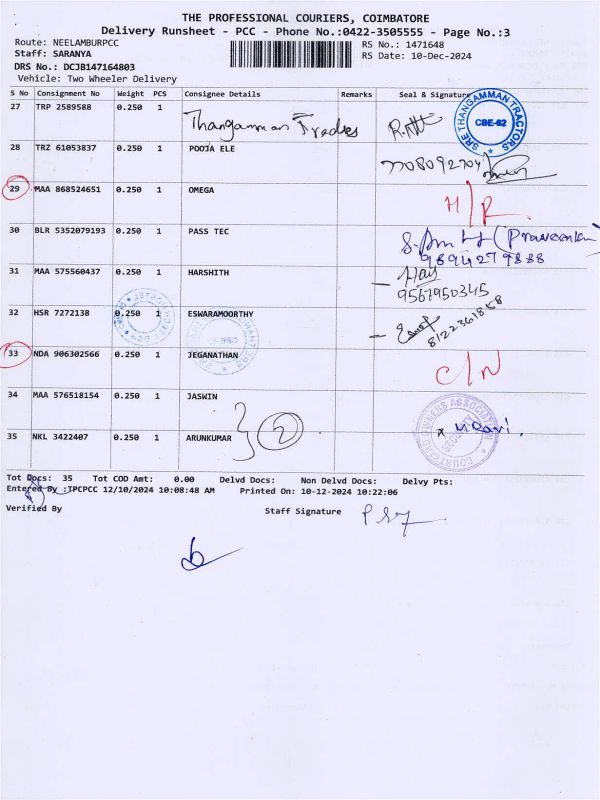 THE PROFESSIONAL COURIERS, COIMBATORE
Delivery Runsheet - PCC - Phone No.:0422-3505555 - Page No.:3
Route: NEELAMBURPCC RS No.: 1471648
Staff: SARANYA RS Date: 10-Dec-2024
DRS No.: DCJB147164803
Vehicle: Two Wheeler Delivery
S No Consignment No Weight PCS Consignee Details Remarks Seal & Signature
27 TRP 2589588 0.250 1 Thangamman Trades
SRE THANGAMMAN TRACTORS CBE-62
28 TRZ 61053837 0.250 1 POOJA ELE 7708092704
29 MAA 868524651 0.250 1 OMEGA H/R
30 BLR 5352079193 0.250 1 PASS TEC
9894279888
31 MAA 575560437 0.250 1 HARSHITH
32 HSR 7272138 0.250 1 ESWARAMOORTHY 8122361858
33 NDA 906302566 0.250 1 JEGANATHAN C/N
34 MAA 576518154 0.250 1 JASWIN
2
35 NKL 3422407 0.250 1 ARUNKUMAR x M.Ravi.
COURTYARD OWNERS ASSOCIATION SECURITY
Tot Docs: 35 Tot COD Amt: 0.00 Delvd Docs: Non Delvd Docs: Delvy Pts:
Entered By :TPCPCC 12/10/2024 10:08:48 AM Printed On: 10-12-2024 10:22:06
Verified By Staff Signature